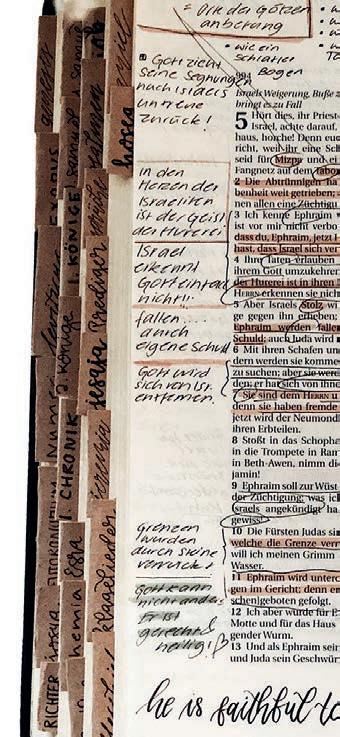 = Orte der Götzen
anbetung
• wie ein
schlaffer
Bogen
Gott zieht
seine Segnungen
nach Israels
untreue
zurück!
In den
Herzen der
Israeliten
ist der Geist
der Hurerei
Israel
erkennt
Gott einfach
nicht!!
fallen....
durch
eigene Schuld
Gott wird
sich von Isr.
entfernen.
Grenzen
wurden
durch steine
verrückt
Gott kann
nicht anders
Er ist
gerecht &
heilig!
894
Israels Weigerung, Buße z
bringt es zu Fall
5 Hört dies, ihr Priest
Israel, achte darauf,
haus, horche! Denn eu
richt, weil ihr eine Sch
seid für Mizpa und ei
Fangnetz auf dem Tabo
2 Die Abtrünnigen ha
benheit weit getrieben; a
nen allen eine Züchtigu
3 Ich kenne Ephraim
ist vor mir nicht verbo
dass du, Ephraim, jetzt H
hast, dass Israel sich ver
4 Ihre Taten erlauben
ihrem Gott umzukehren
der Hurerei ist in ihren
HERRN erkennen sie nich
5 Aber Israels Stolz wi
ge gegen ihn erheben;
Ephraim werden fallen
Schuld; auch Juda wird
6 Mit ihren Schafen un
dern werden sie komme
zu suchen; aber sie werd
den; er hat sich von ihne
7 Sie sind dem HERRN u
denn sie haben fremde
jetzt wird der Neumond
ihren Erbteilen.
8 Stoßt in das Schopha
in die Trompete in Ram
in Beth-Awen, nimm di
jamin!
9 Ephraim soll zur Wüst
der Züchtigung; was ich
Israels angekündigt ha
gewiss!
10 Die Fürsten Judas sin
welche die Grenze verr
will ich meinen Grimm
Wasser.
11 Ephraim wird unterd
gen im Gericht; denn er
schen]geboten gefolgt.
12 Ich aber wurde für E
Motte und für das Haus
gender Wurm.
13 Und als Ephraim sein
und Juda sein Geschwür
he is faithful to
RICHTER
nehemia
Esra
1. CHRONIK
2. Könige
1. KÖNIGE
Jesaja
Prediger
Klagelieder
Hosea